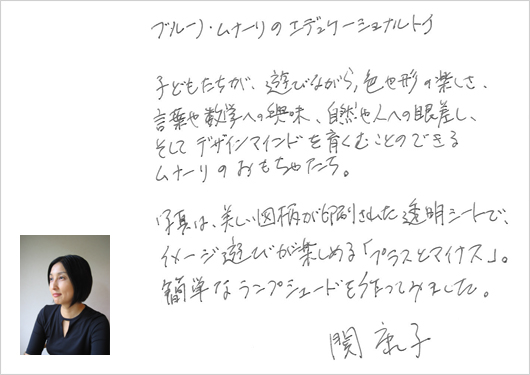 ブルーノ・ムナーリのエデュケーショナルトイ
子どもたちが、遊びながら、色や形の楽しさ、
言葉や数学への興味、自然や人への眼差し、
そしてデザインマインドを育くむことのできる
ムナーリのおもちゃたち。
写真は、美しい図柄が印刷された透明シートで、
イメージ遊びが楽しめる「プラスとマイナス」。
簡単なランプシェードを作ってみました。
関 康子